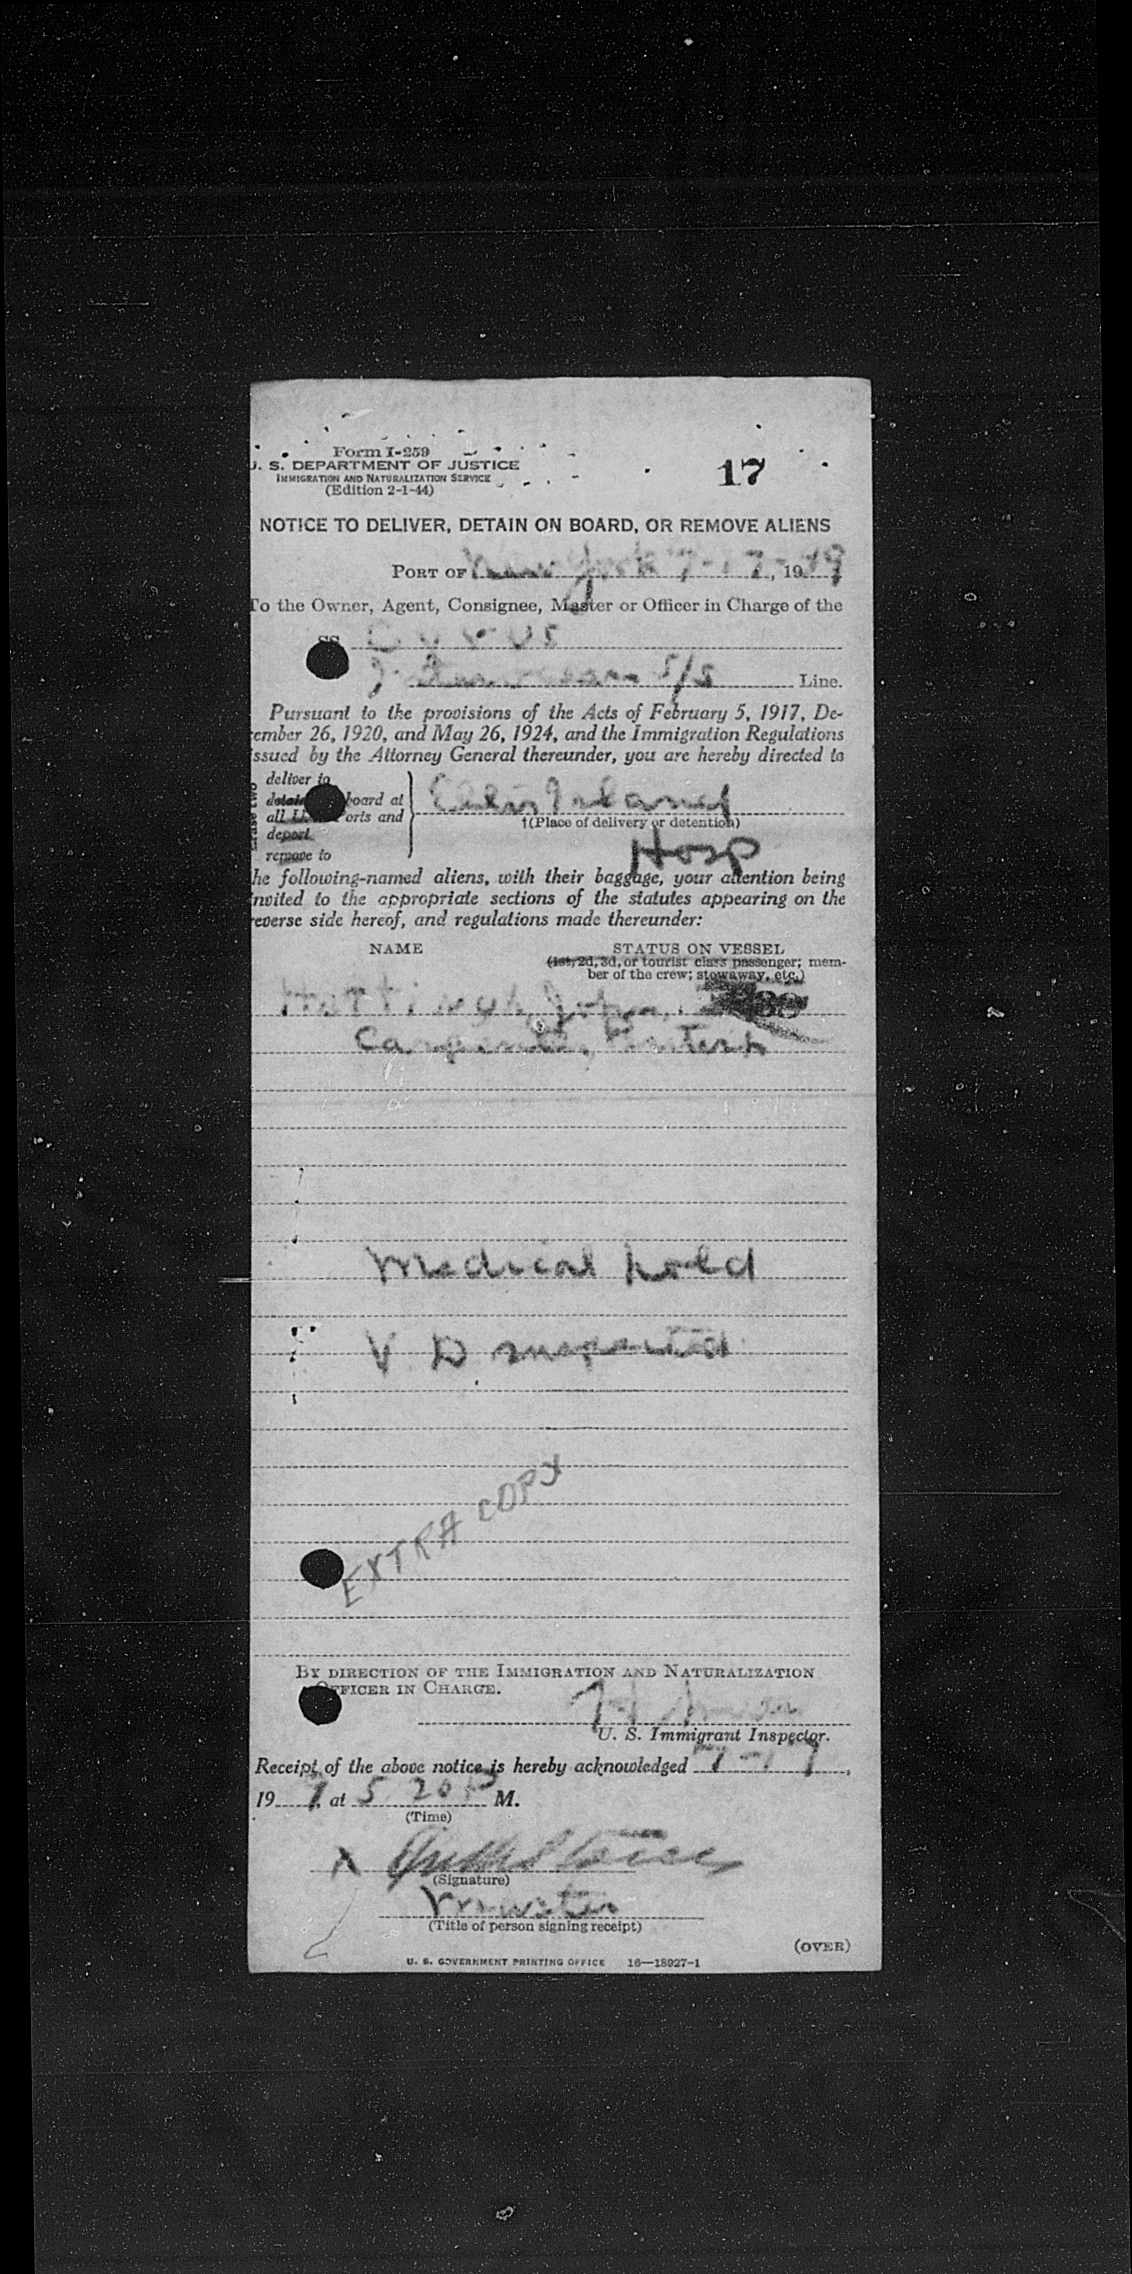 Form I-259
U. S. DEPARTMENT OF JUSTICE
IMMIGRATION AND NATURALIZATION SERVICE
(Edition 2-1-44)
17
NOTICE TO DELIVER, DETAIN ON BOARD, OR REMOVE ALIENS
PORT OF New York 7-17-, 1949
To the Owner, Agent, Consignee, Master or Officer in Charge of the
SS
S/S Line.
Pursuant to the provisions of the Acts of February 5, 1917, De-
cember 26, 1920, and May 26, 1924, and the Immigration Regulations
issued by the Attorney General thereunder, you are hereby directed to
deliver to
detain board at
all orts and
deport
remove to
Erase two
Ellis Island
†(Place of delivery or detention)
Hosp
he following-named aliens, with their baggage, your attention being
invited to the appropriate sections of the statutes appearing on the
reverse side hereof, and regulations made thereunder:
NAME STATUS ON VESSEL
(1st, 2d, 3d, or tourist class passenger; mem-
ber of the crew; stowaway, etc.)
John
Carpenter
Medical hold
V D suspected
EXTRA COPY
BY DIRECTION OF THE IMMIGRATION AND NATURALIZATION
OFFICER IN CHARGE.
U. S. Immigrant Inspector.
Receipt of the above notice is hereby acknowledged 7-17,
19 at 5 20 P M.
(Time)
X
(Signature)
(Title of person signing receipt)
(OVER)
U. S. GOVERNMENT PRINTING OFFICE 16—18927-1